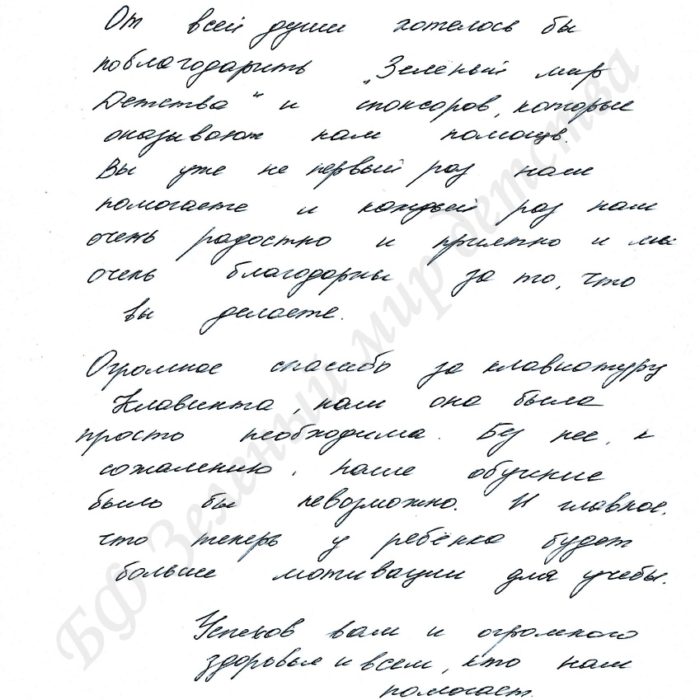 От всей души хотелось бы
поблагодарить „Зелёный мир
Детства“ и спонсоров, которые
оказывают нам помощь.
Вы уже не первый раз нам
помогаете и каждый раз нам
очень радостно и приятно и мы
очень благодарны за то, что
вы делаете.
Огромное спасибо за клавиатуру
Клавинта, нам она была
просто необходима. Без нее, к
сожалению, наше обучение
было бы невозможно. И главное,
что теперь у ребёнка будет
больше мотивации для учебы.
Успехов вам и огромного
здоровья и всем, кто нам
помогает.
БФ Зеленый мир детства